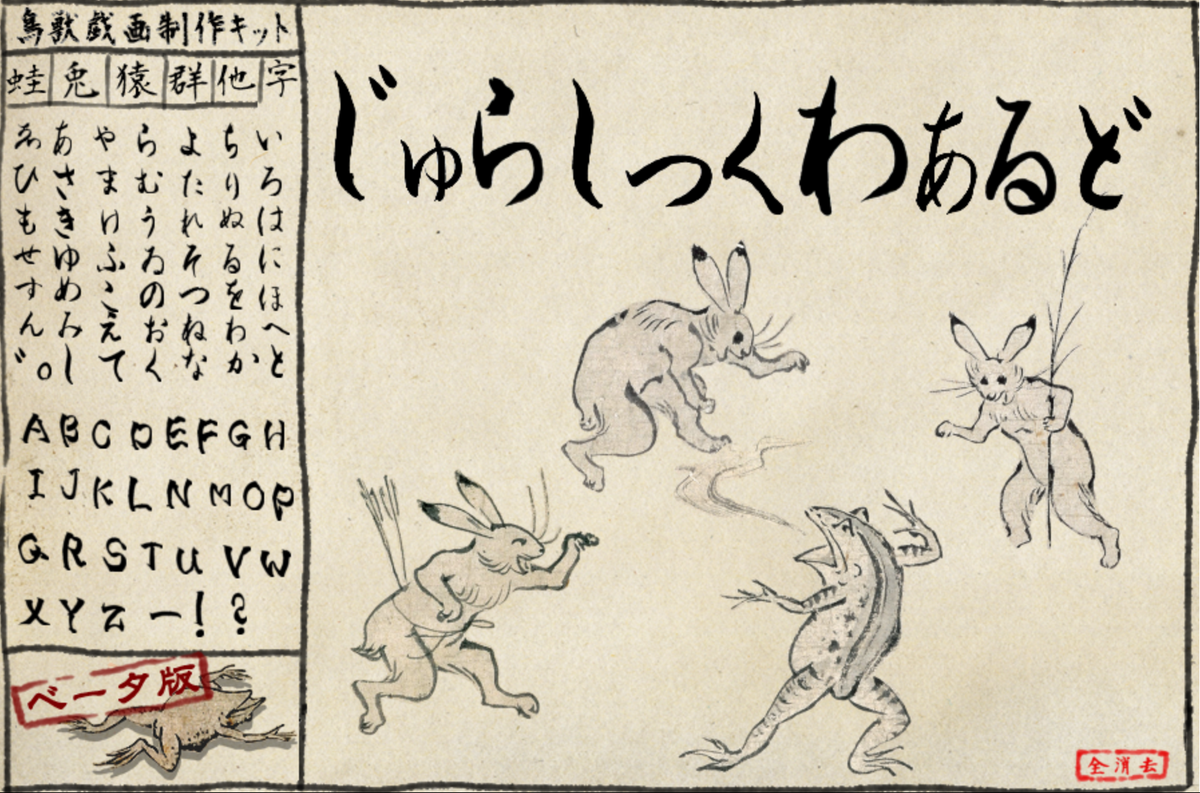 鳥獣戯画制作キット
蛙 兎 猿 群 他 字
いろはにほへと
ちりぬるをわか
よたれそつねな
らむうゐのおく
やまけふこえて
あさきゆめみし
ゑひもせすん゛。
A B C D E F G H
I J K L N M O P
Q R S T U V W
X Y Z ー ! ?
ベータ版
じゅらしっくわあるど
全消去